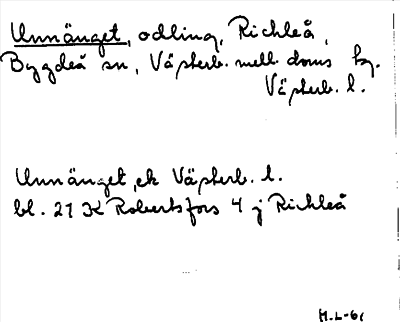 Unnänget, odling, Rickleå,
Bygdeå sn, Västerb. mell. doms hg.
Västerb. l.
Unnänget, ek Västerb. l.
bl. 21 K Robertsfors 4 j Rickleå
M.L-61